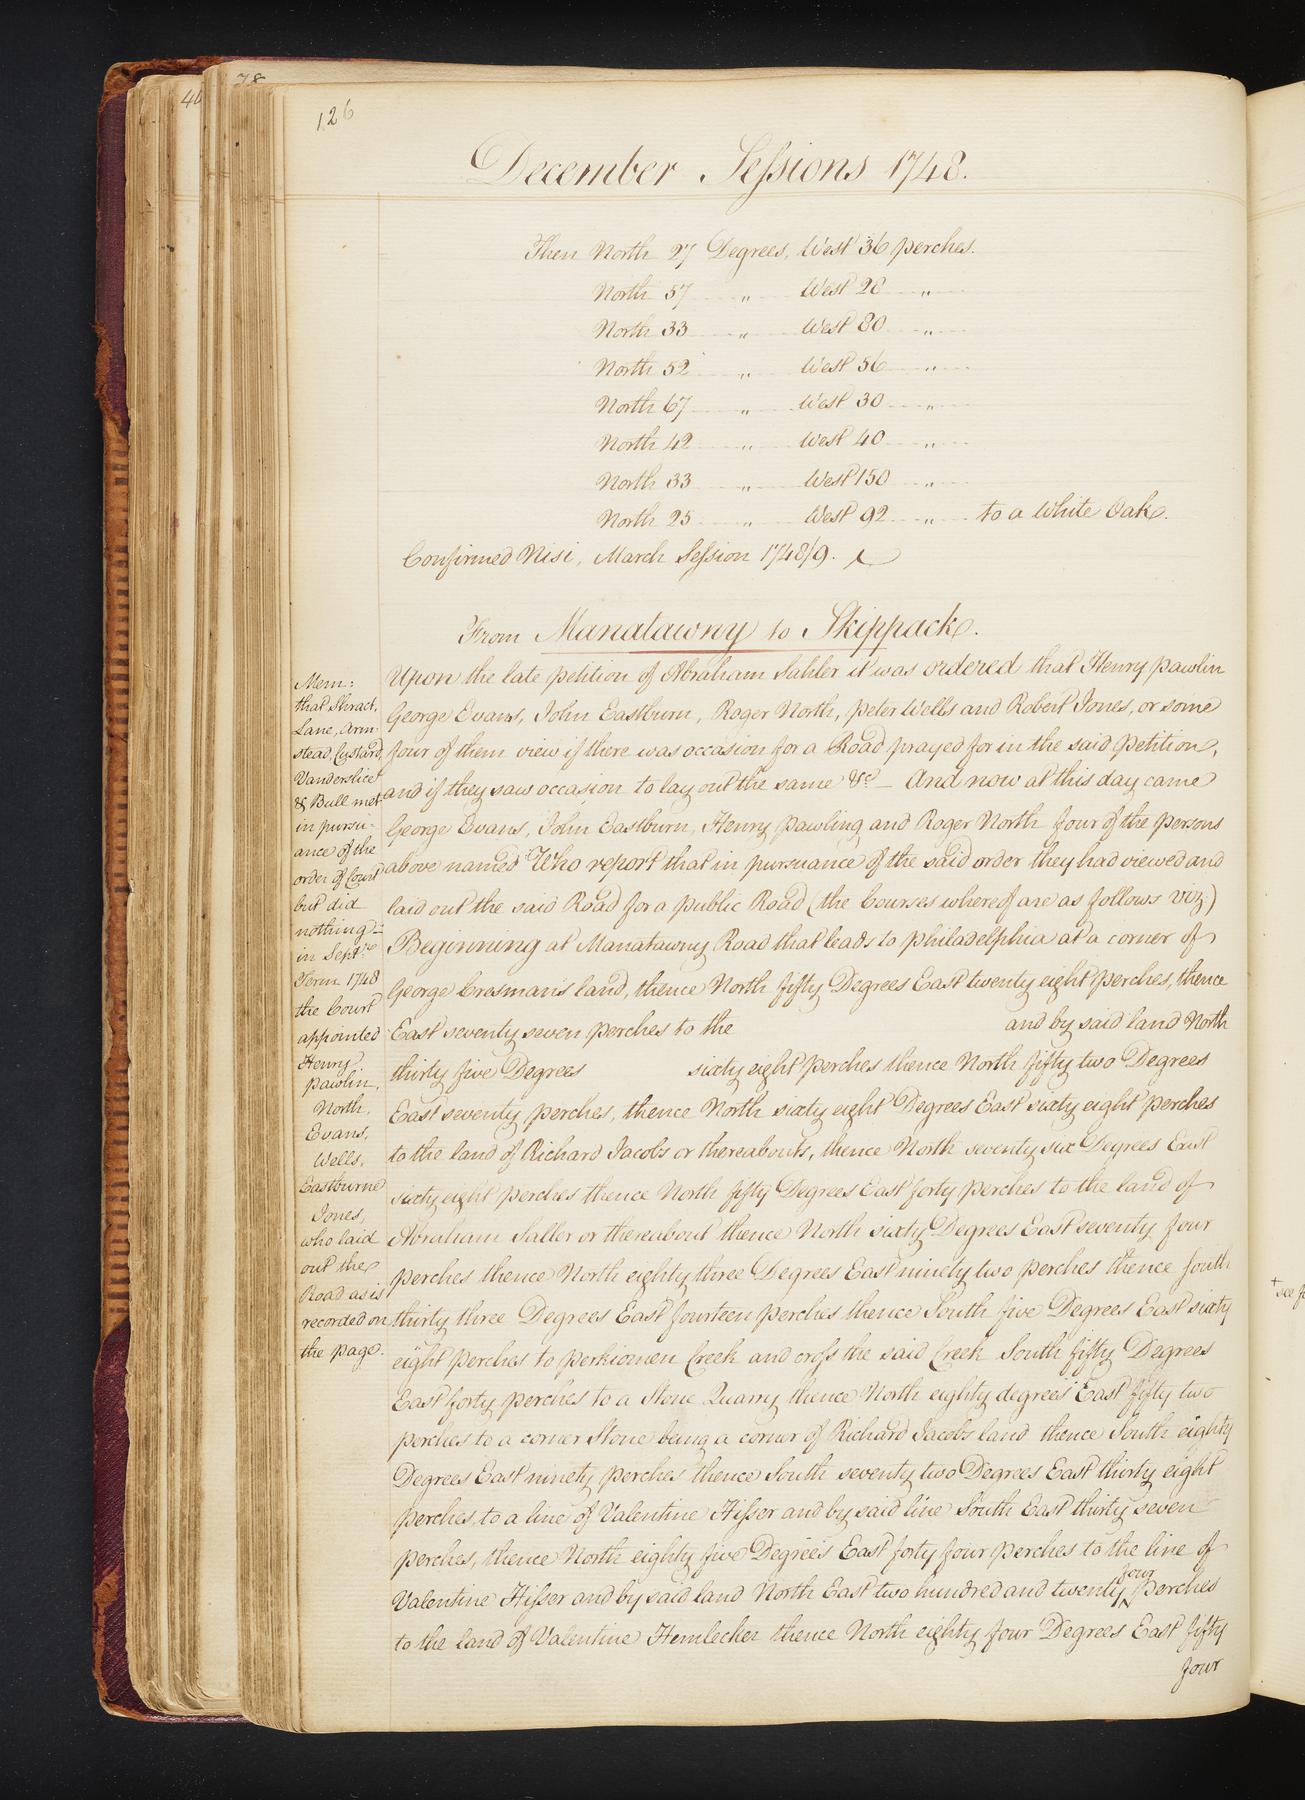 46
78
126
December Sessions 1748.
Then North 27 Degrees, West 36 perches.
North 57 " West 28 "
North 33 " West 80 "
North 52 " West 56 "
North 67 " West 30 "
North 42 " West 40 "
North 33 " West 150 "
North 25 " West 92 " to a White Oak.
Confirmed Nisi, March Session 1748/9.
From Manatawny to Skippack.
Upon the late petition of Abraham Sahler it was ordered that Henry Pawlin
George Evans, John Eastburn, Roger North, Peter Wells and Robert Jones, or some
four of them view if there was occasion for a Road prayed for in the said Petition,
and if they saw occasion to lay out the same &c — And now at this day came
George Evans, John Eastburn, Henry Pawling and Roger North four of the persons
above named Who report that in pursuance of the said order they had viewed and
laid out the said Road for a public Road (the Courses whereof are as follows viz:)
Beginning at Manatawny Road that leads to Philadelphia at a corner of
George Cresman's land, thence North fifty Degrees East twenty eight perches, thence
East seventy seven perches to the and by said land North
thirty five Degrees sixty eight perches thence North fifty two Degrees
East seventy perches, thence North sixty eight Degrees East sixty eight perches
to the land of Richard Jacobs or thereabouts, thence North seventy six Degrees East
sixty eight perches thence North fifty Degrees East forty perches to the land of
Abraham Saller or thereabout thence North sixty Degrees East seventy four
perches thence North eighty three Degrees East ninety two perches thence South
thirty three Degrees East fourteen perches thence South five Degrees East sixty
eight perches to Perkiomen Creek and cross the said Creek South fifty Degrees
East forty perches to a Stone Quarry thence North eighty degrees East fifty two
perches to a corner Stone being a corner of Richard Jacobs land thence South eighty
Degrees East ninety perches thence South seventy two Degrees East thirty eight
perches, to a line of Valentine Hisser and by said line South East thirty seven
perches, thence North eighty five Degrees East forty four perches to the line of
Valentine Hisser and by said land North East two hundred and twenty four perches
to the land of Valentine Hemlecker thence North eighty four Degrees East fifty
four
Mem:
that Shract,
Lane, Arm-
stead, Custard,
Vanderslice
& Bull met
in pursu-
ance of the
order of Court
but did
nothing —
in Sept.re
Term 1748
the Court
appointed
Henry
Pawlin,
North,
Evans,
Wells,
Eastburne
Jones,
who laid
out the
Road as is
recorded on
the page.
+ see